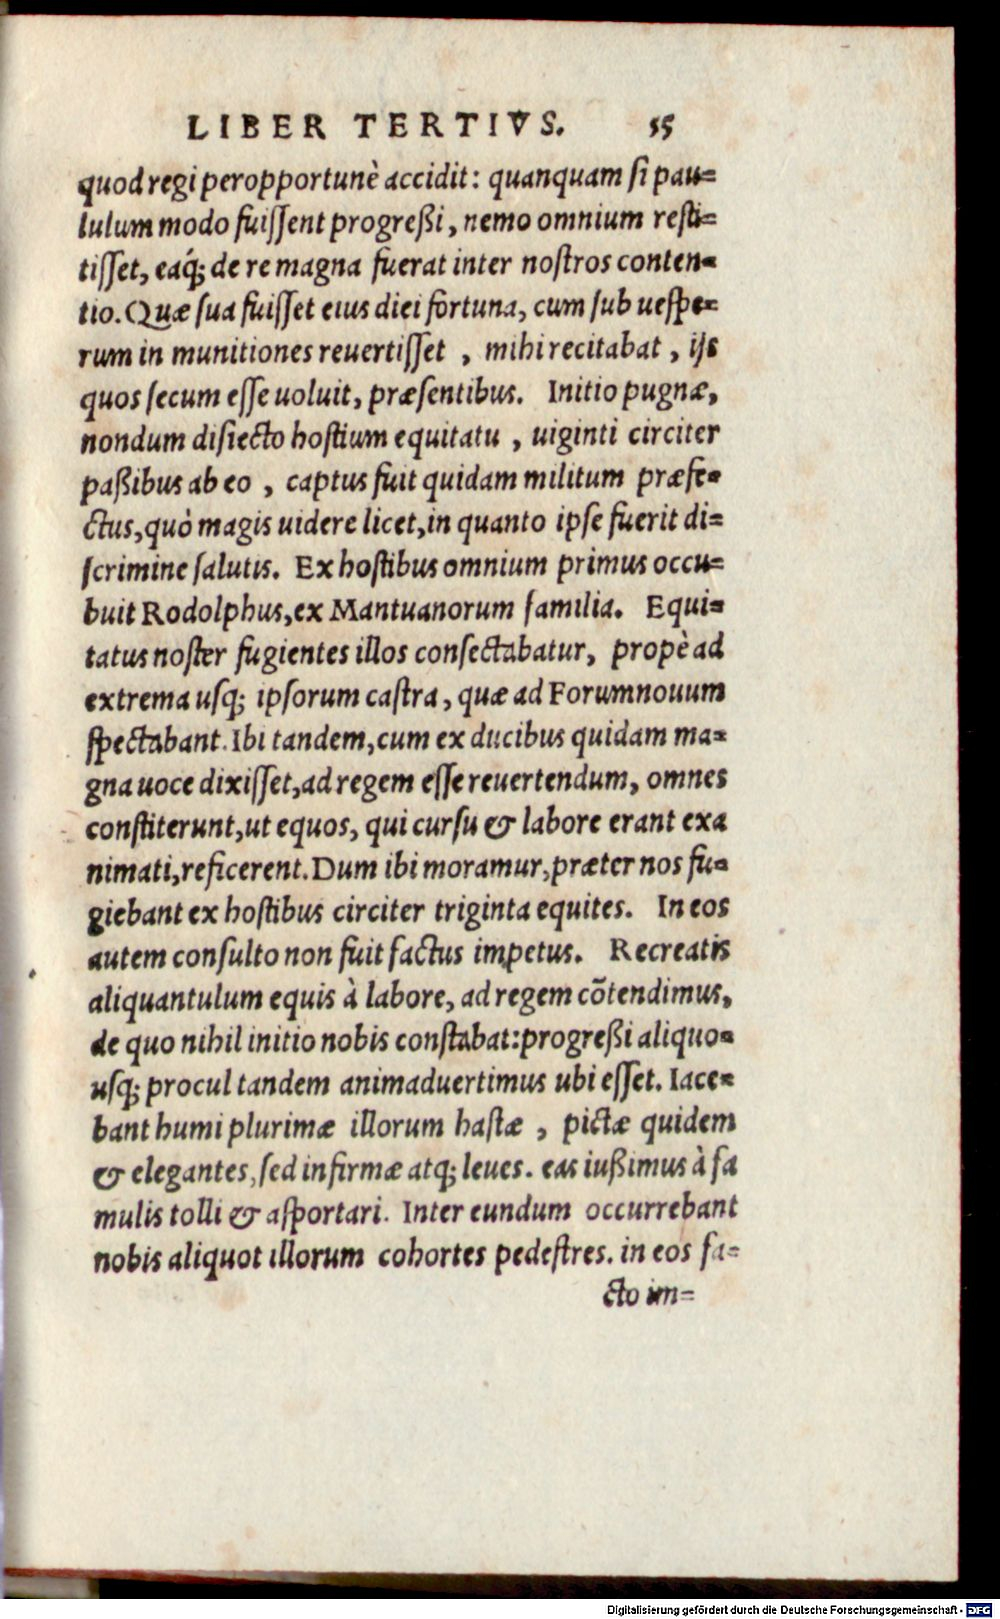 LIBER TERTIVS. 55
quod regi peropportunè accidit: quanquam si pau=
lulum modo fuissent progreßi, nemo omnium resti=
tisset, eaq́; de re magna fuerat inter nostros conten=
tio. Quæ sua fuisset eius diei fortuna, cum sub uespe=
rum in munitiones reuertisset , mihi recitabat , ijs
quos secum esse uoluit, præsentibus. Initio pugnæ,
nondum disiecto hostium equitatu , uiginti circiter
paßibus ab eo , captus fuit quidam militum præfe=
ctus, quò magis uidere licet, in quanto ipse fuerit di=
scrimine salutis. Ex hostibus omnium primus occu=
buit Rodolphus, ex Mantuanorum familia. Equi=
tatus noster fugientes illos consectabatur, propè ad
extrema usq; ipsorum castra, quæ ad Forumnouum
spectabant. Ibi tandem, cum ex ducibus quidam ma=
gna uoce dixisset, ad regem esse reuertendum, omnes
constiterunt, ut equos, qui cursu & labore erant exa
nimati, reficerent. Dum ibi moramur, præter nos fu=
giebant ex hostibus circiter triginta equites. In eos
autem consulto non fuit factus impetus. Recreatis
aliquantulum equis à labore, ad regem cõtendimus,
de quo nihil initio nobis constabat: progreßi aliquo=
usq; procul tandem animaduertimus ubi esset. Iace=
bant humi plurimæ illorum hastæ , pictæ quidem
& elegantes, sed infirmæ atq; leues. eas iußimus à fa
mulis tolli & asportari. Inter eundum occurrebant
nobis aliquot illorum cohortes pedestres. in eos fa=
cto im=
Digitalisierung gefördert durch die Deutsche Forschungsgemeinschaft - DFG